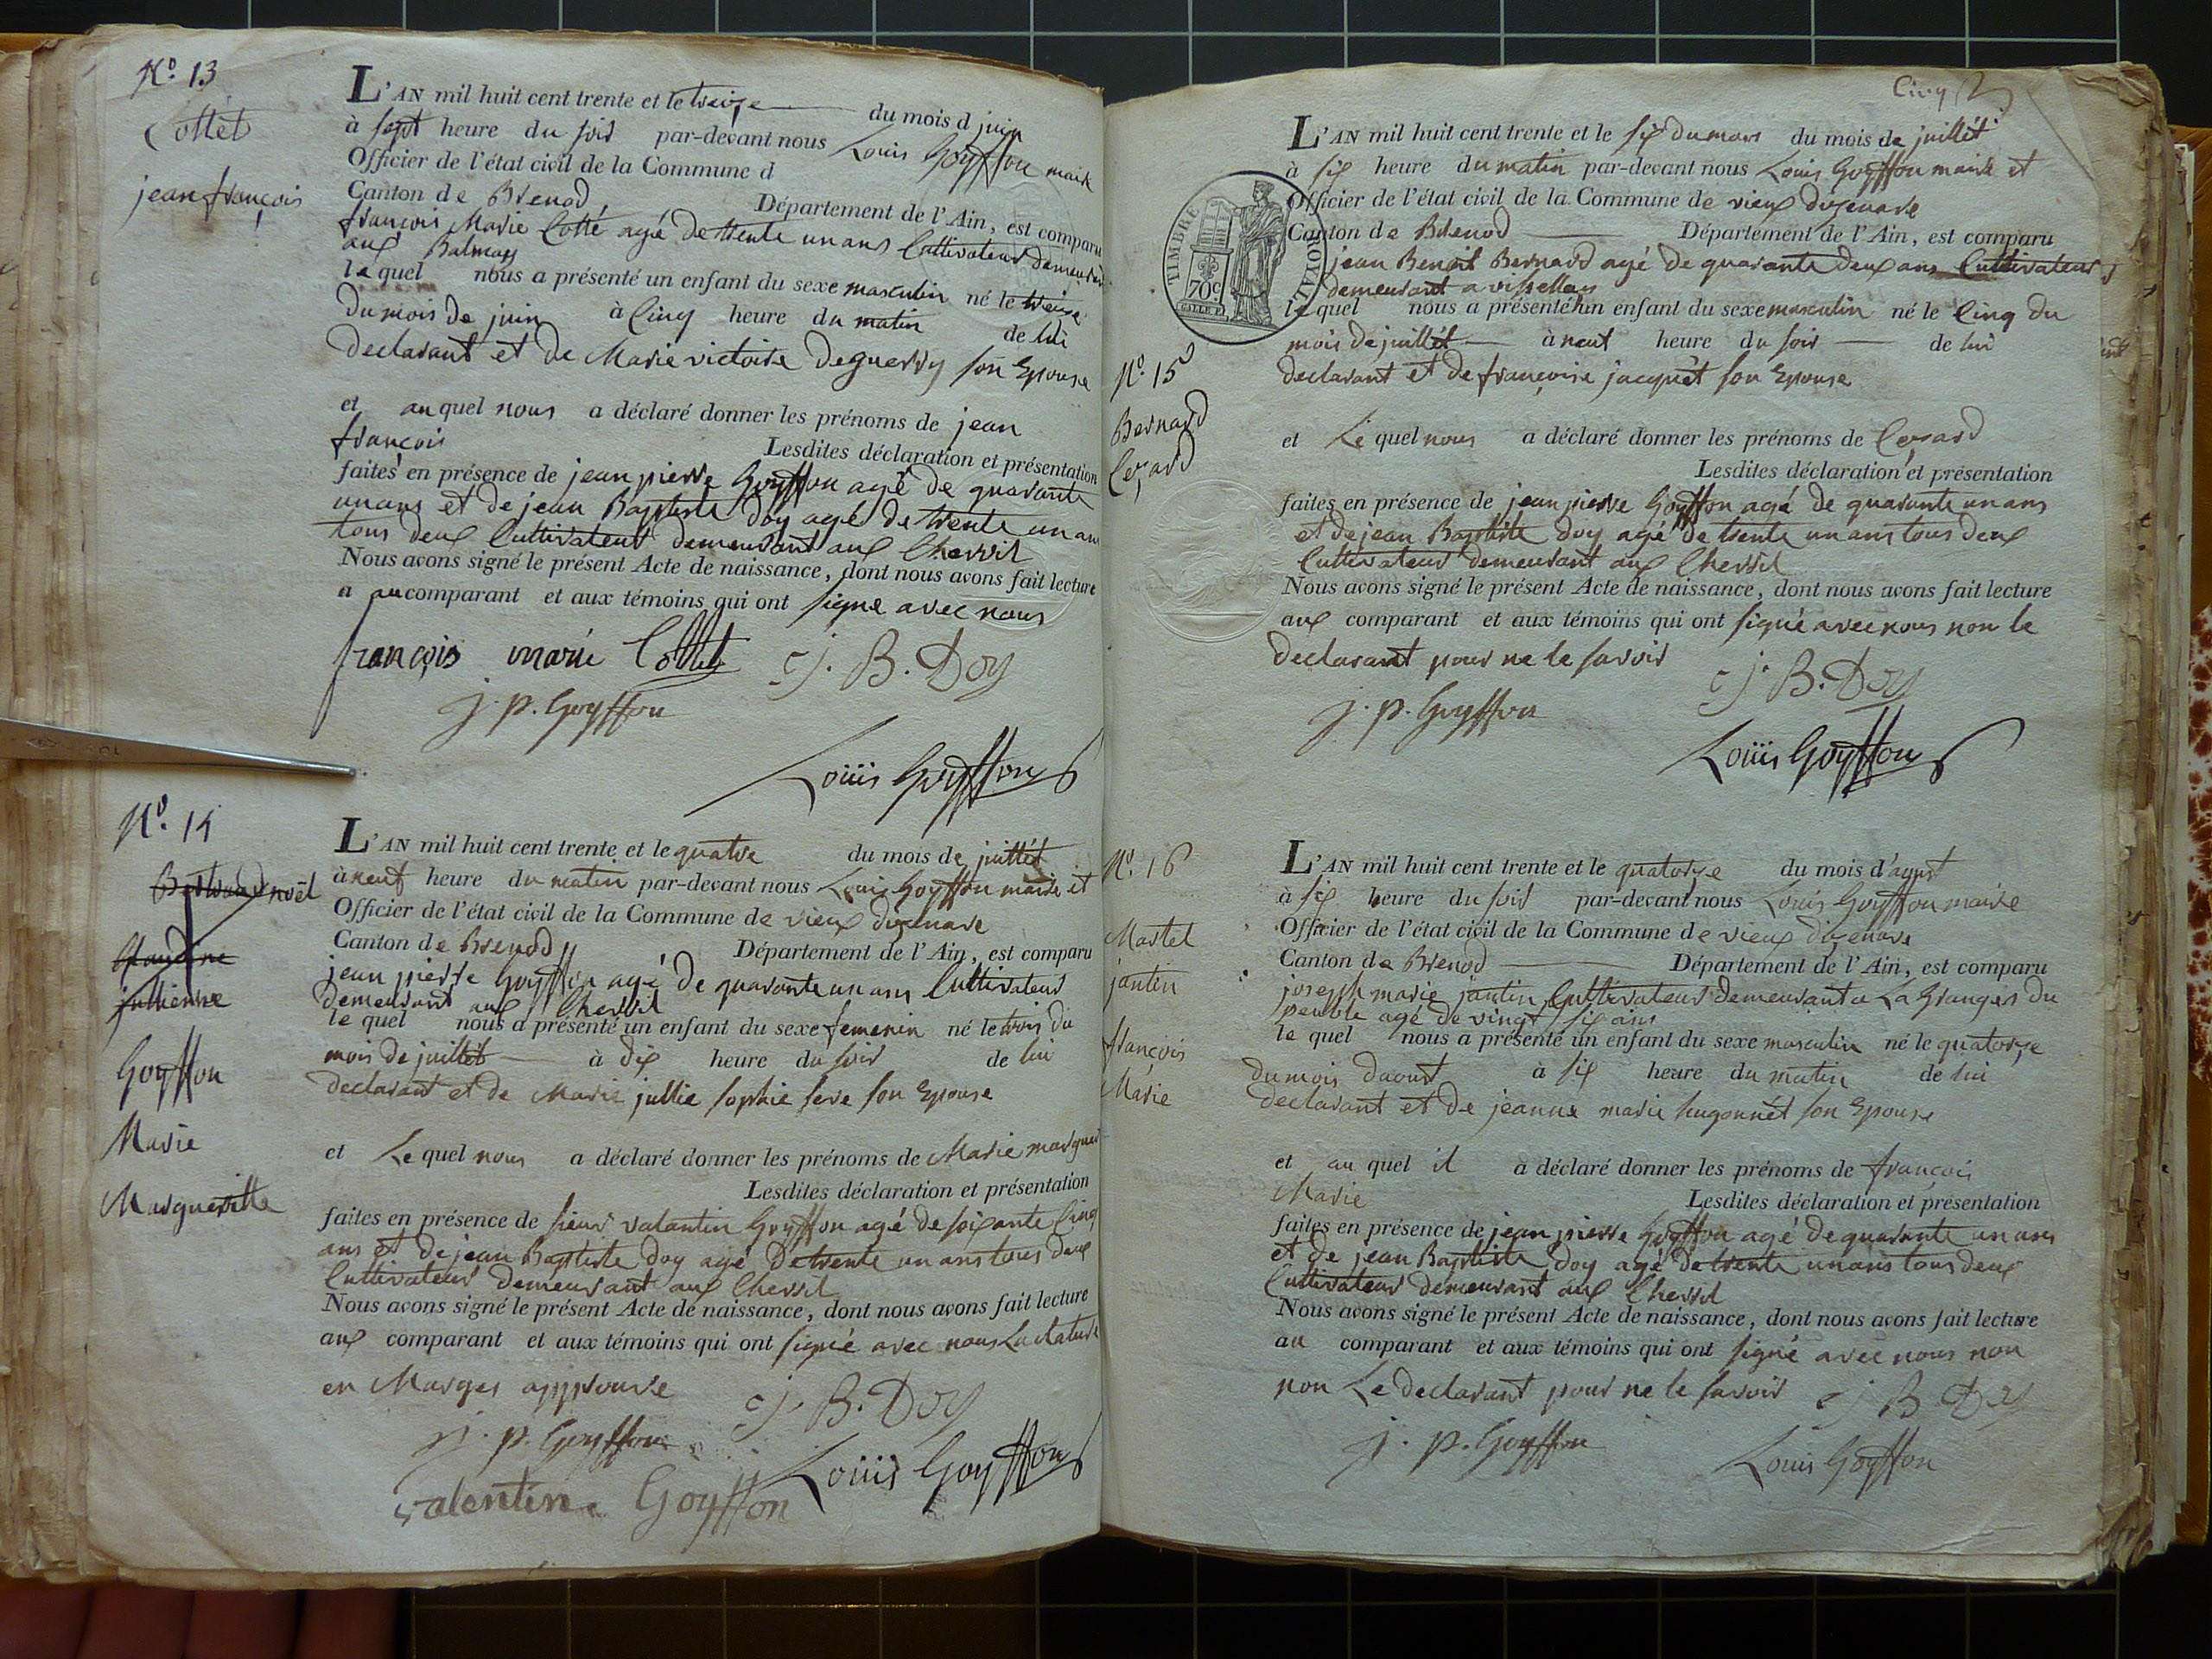 N.o 13
Collet
jean françois
L'AN mil huit cent trente et le treize du mois d juin
à sept heure du soir par-devant nous Louis Goyffon maire
Officier de l'état civil de la Commune d
Canton de Brenod, Département de l'Ain, est comparu
françois Marie Collé agé de trente un ans Cultivateur demeurant
aux Balmay
le quel nous a présenté un enfant du sexe masculin né le treize
du mois de juin à Cinq heure du matin de lui
declarant et de Marie victoire deguerry son Epouse
et au quel nous a déclaré donner les prénoms de jean
françois Lesdites déclaration et présentation
faites en présence de jean pierre Goyffon agé de quarante
un ans et de jean Baptiste doy agé de trente un ans
tous deux Cultivateur demeurant aux Chevril
Nous avons signé le présent Acte de naissance, dont nous avons fait lecture
au comparant et aux témoins qui ont signe avec nous
françois marie Collet J. B. Doy
j. p. Goyffon
Louis Goyffon
N.o 14
Bertrand noël
Claudine
jullienne
Goyffon
Marie
Margueritte
L'AN mil huit cent trente et le quatre du mois de juillet
à neuf heure du matin par-devant nous Louis Goyffon maire et
Officier de l'état civil de la Commune de vieux dizenave
Canton de Brenod Département de l'Ain, est comparu
jean pierre Goyffon agé de quarante un ans Cultivateur
demeurant aux Chevril
le quel nous a présenté un enfant du sexe femenin né le trois du
mois de juillet à dix heure du soir de lui
declarant et de Marie jullie sophie seve son Epouse
et Le quel nous a déclaré donner les prénoms de Marie marguer
Lesdites déclaration et présentation
faites en présence de sieur valantin Goyffon agé de soixante Cinq
ans et de jean Baptiste doy agé de trente un ans tous deux
Cultivateur demeurant aux Chevril
Nous avons signé le présent Acte de naissance, dont nous avons fait lecture
aux comparant et aux témoins qui ont signé avec nous La rature
en Marges approuve
J. B. Doy
j. p. Goyffon
Louis Goyffon
valentin Goyffon
Cinq
L'AN mil huit cent trente et le six du mois du mois de juillet
à six heure du matin par-devant nous Louis Goyffon maire et
Officier de l'état civil de la Commune de vieux dizenave
Canton de Brenod Département de l'Ain, est comparu
jean Benoit Bernard agé de quarante deux ans Cultivateur
demeurant a vissellay
le quel nous a présenté un enfant du sexe masculin né le Cinq du
mois de juillet à neuf heure du soir de lui
declarant et de françoise jacquet son Epouse
TIMBRE ROYAL
70c
N.o 15
Bernard
Cezard
et Le quel nous a déclaré donner les prénoms de Cezard
Lesdites déclaration et présentation
faites en présence de jean pierre Goyffon agé de quarante un ans
et de jean Baptiste doy agé de trente un ans tous deux
Cultivateur demeurant aux Chevril
Nous avons signé le présent Acte de naissance, dont nous avons fait lecture
aux comparant et aux témoins qui ont signé avec nous non le
declarant pour ne le savoir
J. B. Doy
j. p. Goyffon
Louis Goyffon
N.o 16
Martel
jantin
françois
Marie
L'AN mil huit cent trente et le quatorze du mois d'aoust
à six heure du soir par-devant nous Louis Goyffon maire
Officier de l'état civil de la Commune de vieux dizenave
Canton de Brenod Département de l'Ain, est comparu
joseph marie jantin Cultivateur demeurant a La Granges du
agé de vingt six ans
le quel nous a présenté un enfant du sexe masculin né le quatorze
du mois daoust à six heure du matin de lui
declarant et de jeanne marie hugonnet son Epouse
et au quel il a déclaré donner les prénoms de françoi
Marie Lesdites déclaration et présentation
faites en présence de jean pierre Goyffon agé de quarante un ans
et de jean Baptiste doy agé de trente un ans tous deux
Cultivateur demeurant aux Chevril
Nous avons signé le présent Acte de naissance, dont nous avons fait lecture
au comparant et aux témoins qui ont signé avec nous non
non Le declarant pour ne le savoir J B Doy
j. p. Goyffon
Louis Goyffon